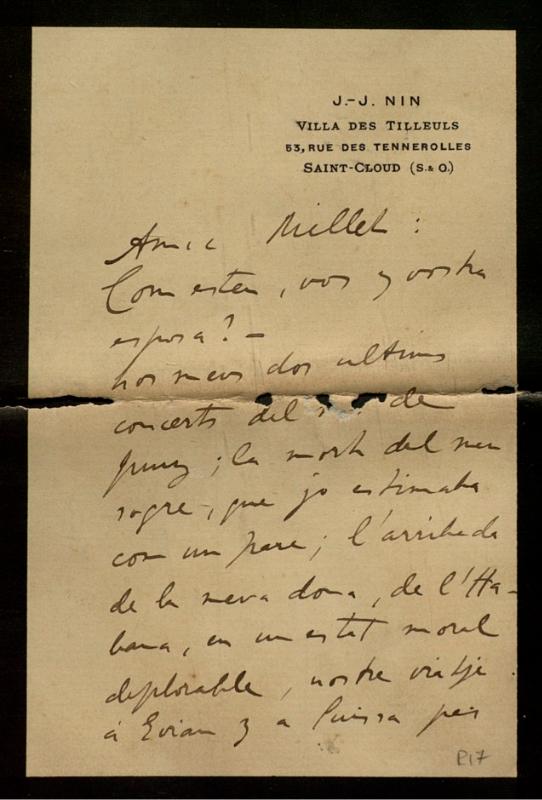 J.-J. NIN
VILLA DES TILLEULS
53, RUE DES TENNEROLLES
SAINT-CLOUD (S. & O.)
Amic Millet:
Com esteu, vos y vostra
esposa? —
los meus dos ultims
concerts del de
Juny; la mort del meu
sogre, que jo estimaba
com un pare; l'arribada
de la meva dona, de l'Ha-
bana, en un estat moral
deplorable, nostre viatje
á Evian y a Suissa per
P17